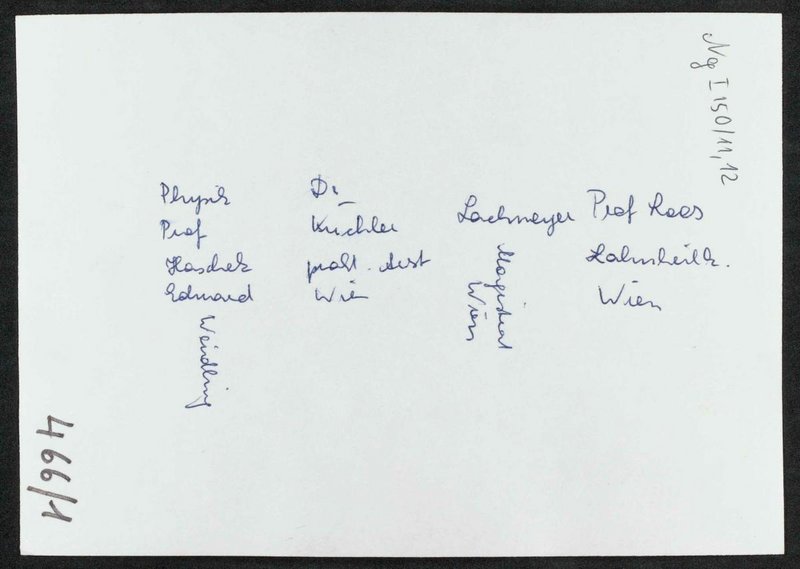 Ng I 150/11,12
Physik
Prof
Haschek
Eduard
Weidling
Dr.
Küchler
prakt. Arzt
Wien
Lachmayer
Magistrat
Wien
Prof Haas
Zahnheilk.
Wien
466/1